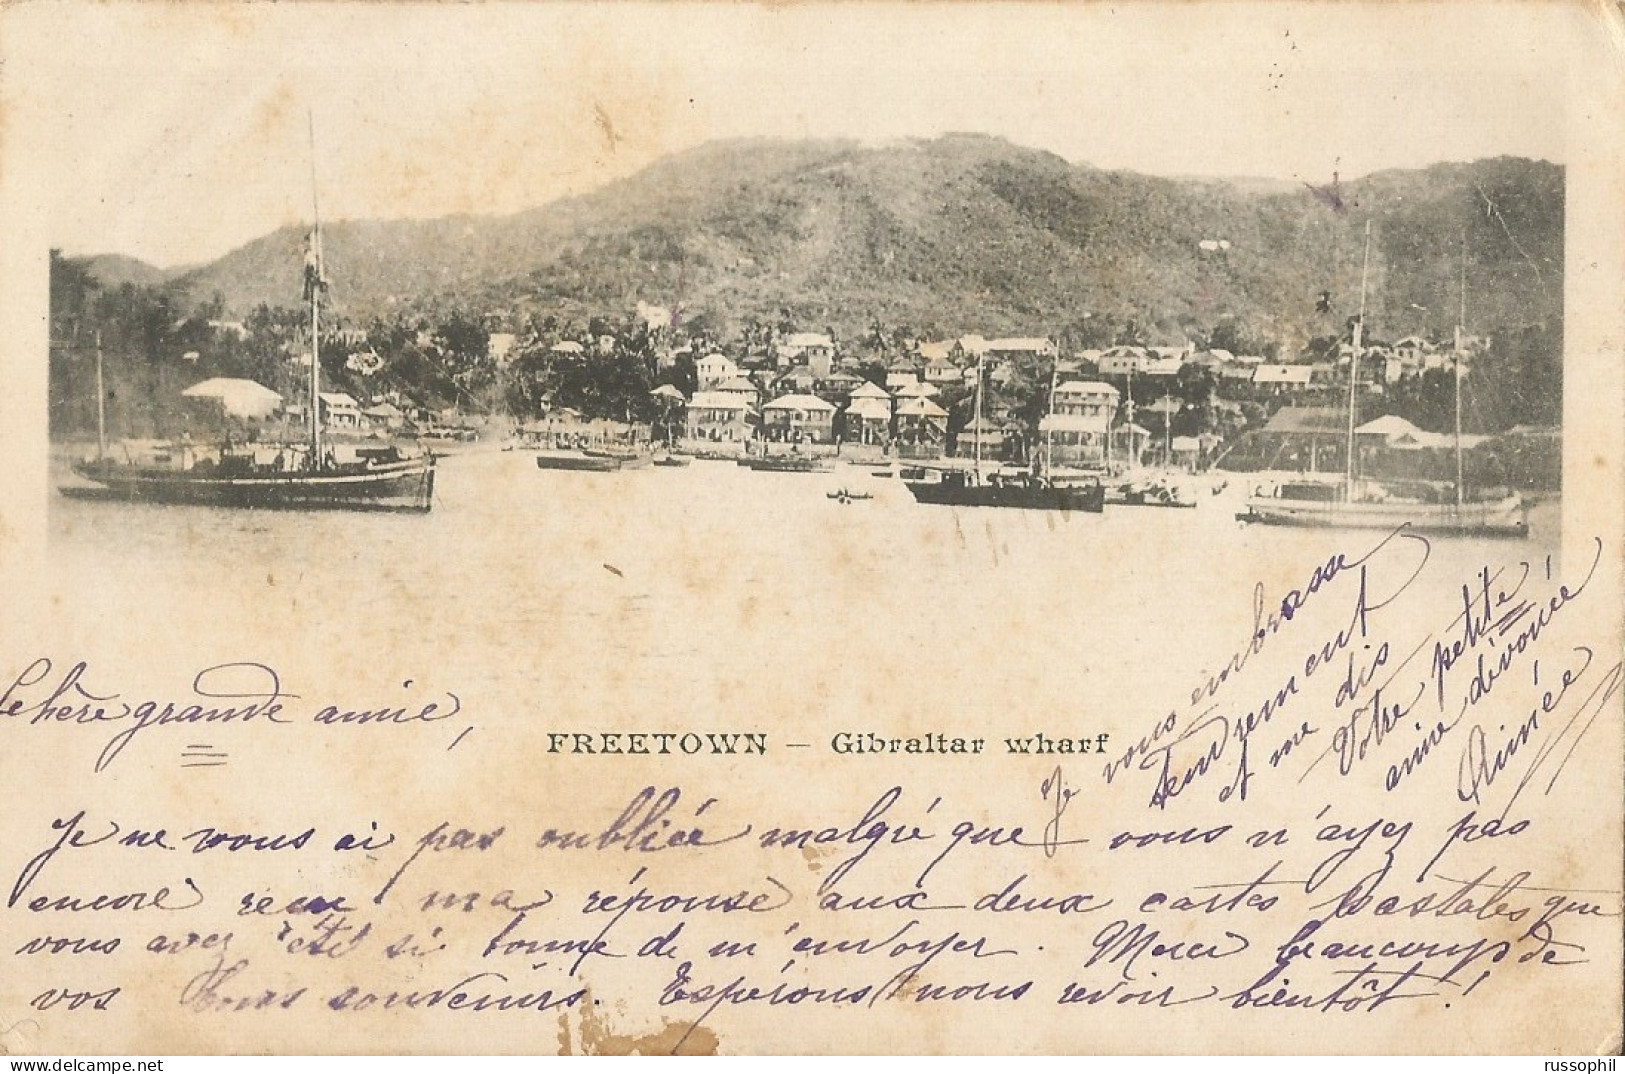 Chère grande amie,
FREETOWN – Gibraltar wharf
Je ne vous ai pas oubliée malgré que vous n'ayez pas
encore reçu ma réponse aux deux cartes postales que
vous avez été si bonne de m'envoyer. Merci beaucoup de
vos bons souvenirs. Espérons nous revoir bientôt!
Je vous embrasse
tendrement
et me dis
Votre petite
amie dévouée
Aimée
russophil